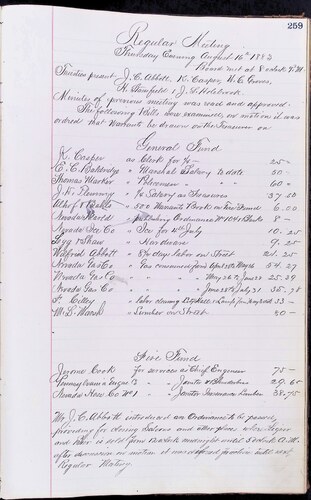 259
Regular Meeting
Thursday Evening August 16th 1883
Board met at 8 o'clock P.M.
Trustees present J. C. Abbott, K. Casper, W. C. Groves,
J. S. Holbrook
Minutes of previous meeting was read and approved
The following Bills were examined, on motion it was
ordered that Warrants be drawn on the Treasurer on
General Fund
K. Casper as Clerk for 25 -
" Marshal Salary to date 50 -
Thomas Marker " Policeman " " 60 -
" Salary as Treasurer 37 50
" 500 Warrants Book on Fire Fund 6 00
Nevada Herald " publishing Ordinance No 104 & Blanks 8 -
Nevada Ice Co " Ice for July 10.25
Legg & Shaw " Hardware 9.25
Abbott " days labor on Street 21.25
Nevada Gas Co " Gas consumed from April to May 26 54.27
Nevada Gas Co " " " May 26 to June 28 25.29
Nevada Gas Co " " " June 28 to July 31 35.78
" labor cleaning 33 -
" Lumber on Street 20 -
Fire Fund
Jerome Cook for services as Chief Engineer 75 -
Pennsylvania Engine Co " " Janitor & 29.65
Nevada Hose Co No 1 " " Janitor Lumber 38.75
Mr. J. C. Abbott introduced an Ordinance to be passed,
providing for closing Saloons and other places where Liquor
and Beer is sold from 12 o'clock midnight until 5 o'clock A.M.
after discussion on motion it was deferred further until next
Regular Meeting.